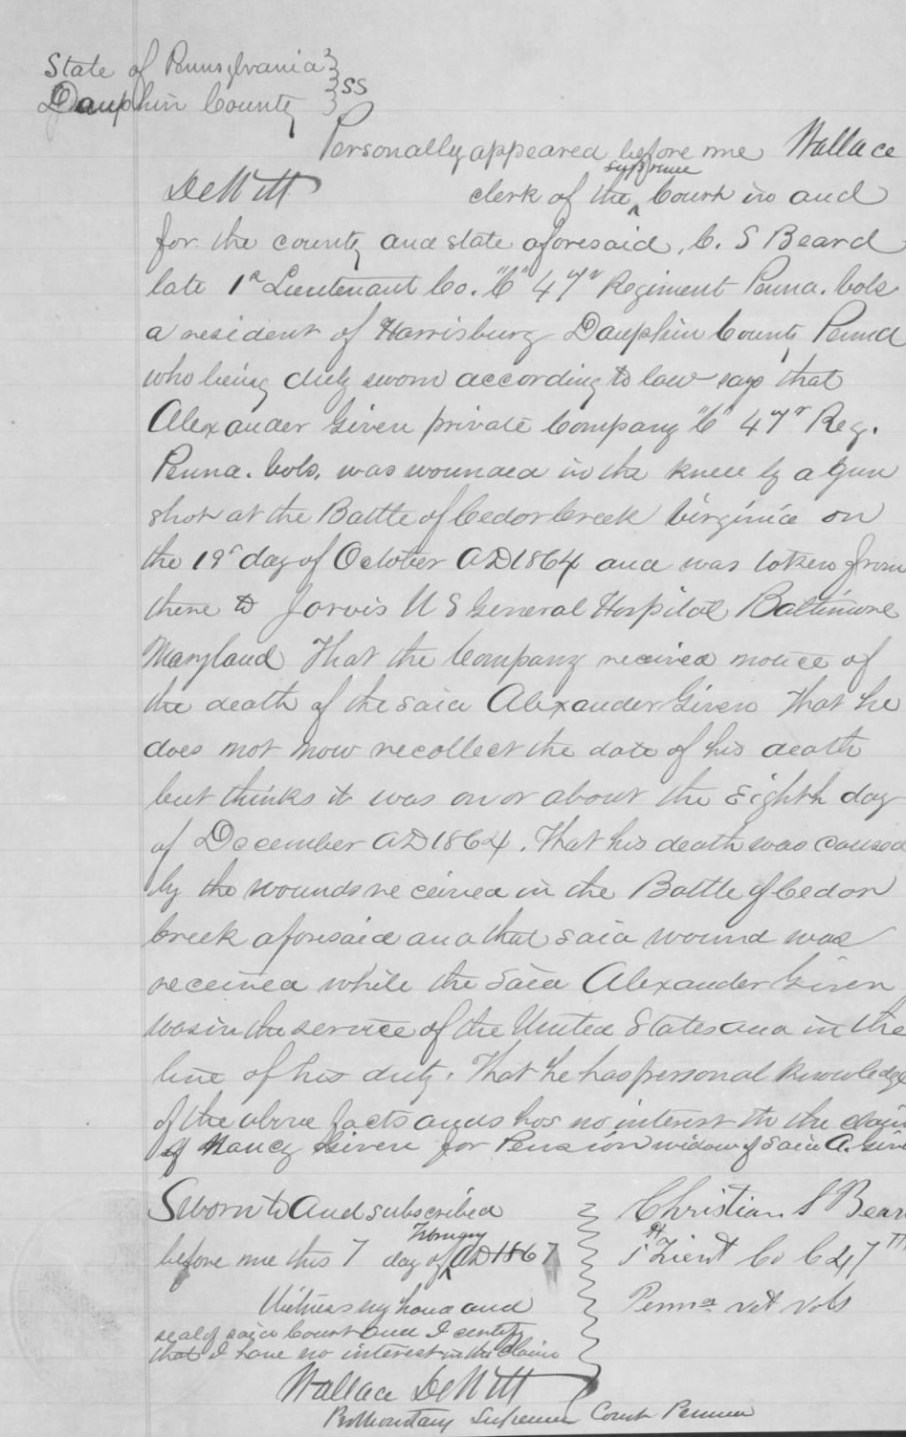 State of Pennsylvania }
Dauphin County } SS
Personally appeared before me Wallace
DeWitt clerk of the supreme Court in and
for the county and state aforesaid, C. S Beard
late 1st Lieutenant Co. "C" 47th Regiment Penna. Vols
a resident of Harrisburg Dauphin County Penna
who being duly sworn according to law says that
Alexander Given private Company "C" 47th Reg.
Penna. Vols. was wounded in the knee by a gun
shot at the Battle of Cedar Creek Virginia on
the 19th day of October AD 1864 and was taken from
there to Jarvis U S General Hospital Baltimore
Maryland That the Company received notice of
the death of the said Alexander Given That he
does not now recollect the date of his death
but thinks it was on or about the Eighth day
of December AD 1864. That his death was caused
by the wounds received in the Battle of Cedar
Creek aforesaid and that said wound was
received while the said Alexander Given
was in the service of the United States and in the
line of his duty. That he has personal knowledge
of the above facts and has no interest in the claim
of Nancy Given for Pension widow of said A. Given
Sworn to and subscribed
before me this 7 day of February AD 1867
Witness my hand and
seal of said Court and I certify
that I have no interest in the claim
Wallace DeWitt
Prothonotary Supreme Court Penna
Christian S Beard
1st Lieut Co C 47th
Penna vet vols